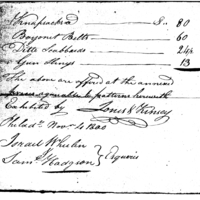 Knapsacks $ 80
Bayonet Belts 60
Ditto Scabbards 24
Gun Slings 13
The above are offered at the annexed
prices agreeable to patterns herewith
Exhibited by Jones & Kinsey
Philada Nov. 4 1800
Israel Whelen
Saml Hodgson } Esquires